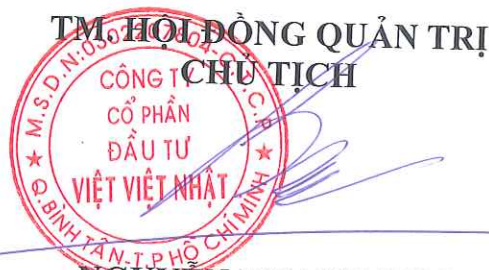 TM. HỘI ĐỒNG QUẢN TRỊ
CHỦ TỊCH
CÔNG TY
CỔ PHẦN
ĐẦU TƯ
VIỆT VIỆT NHẬT
Q.BÌNH TÂN-T.P HỒ CHÍ MINH